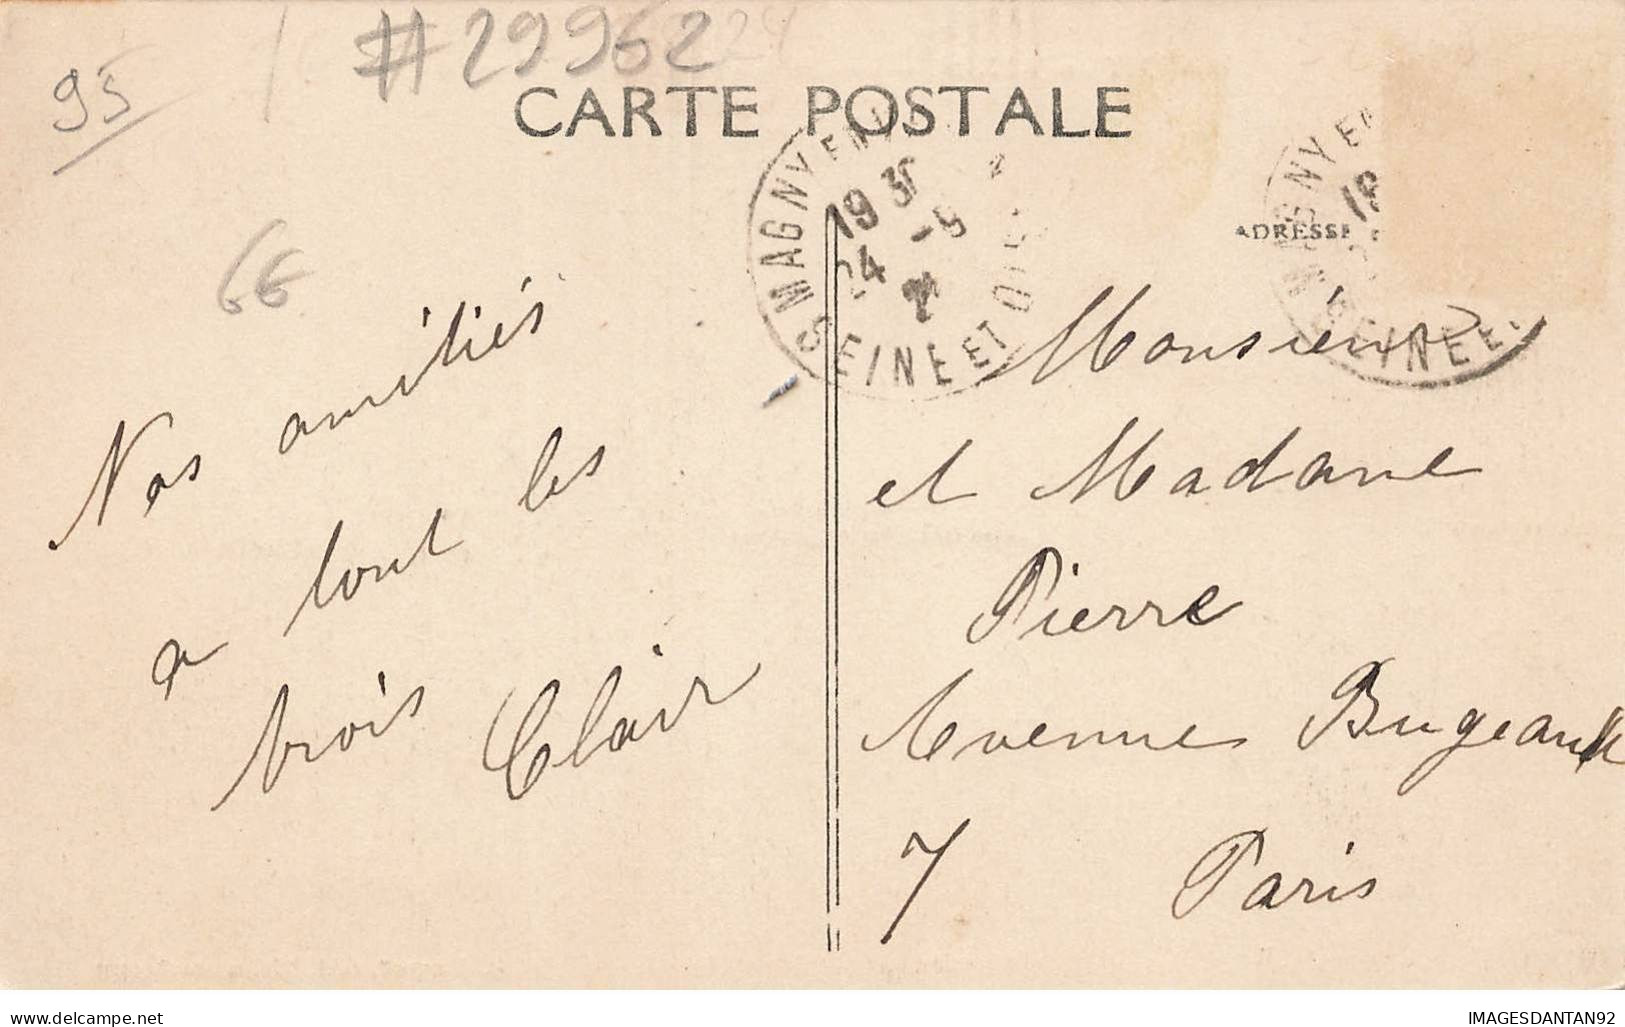 #29962
95
CARTE POSTALE
MAGNY EN
19 30
24 -9
SEINE ET OISE
ADRESSE
MAGNY EN
SEINE E
66
Nos amitiés
a tout les
trois Clair
Monsieur
et Madame
Pierre
Avenue Bugeaud
7 Paris
delcampe.net
IMAGESDANTAN92